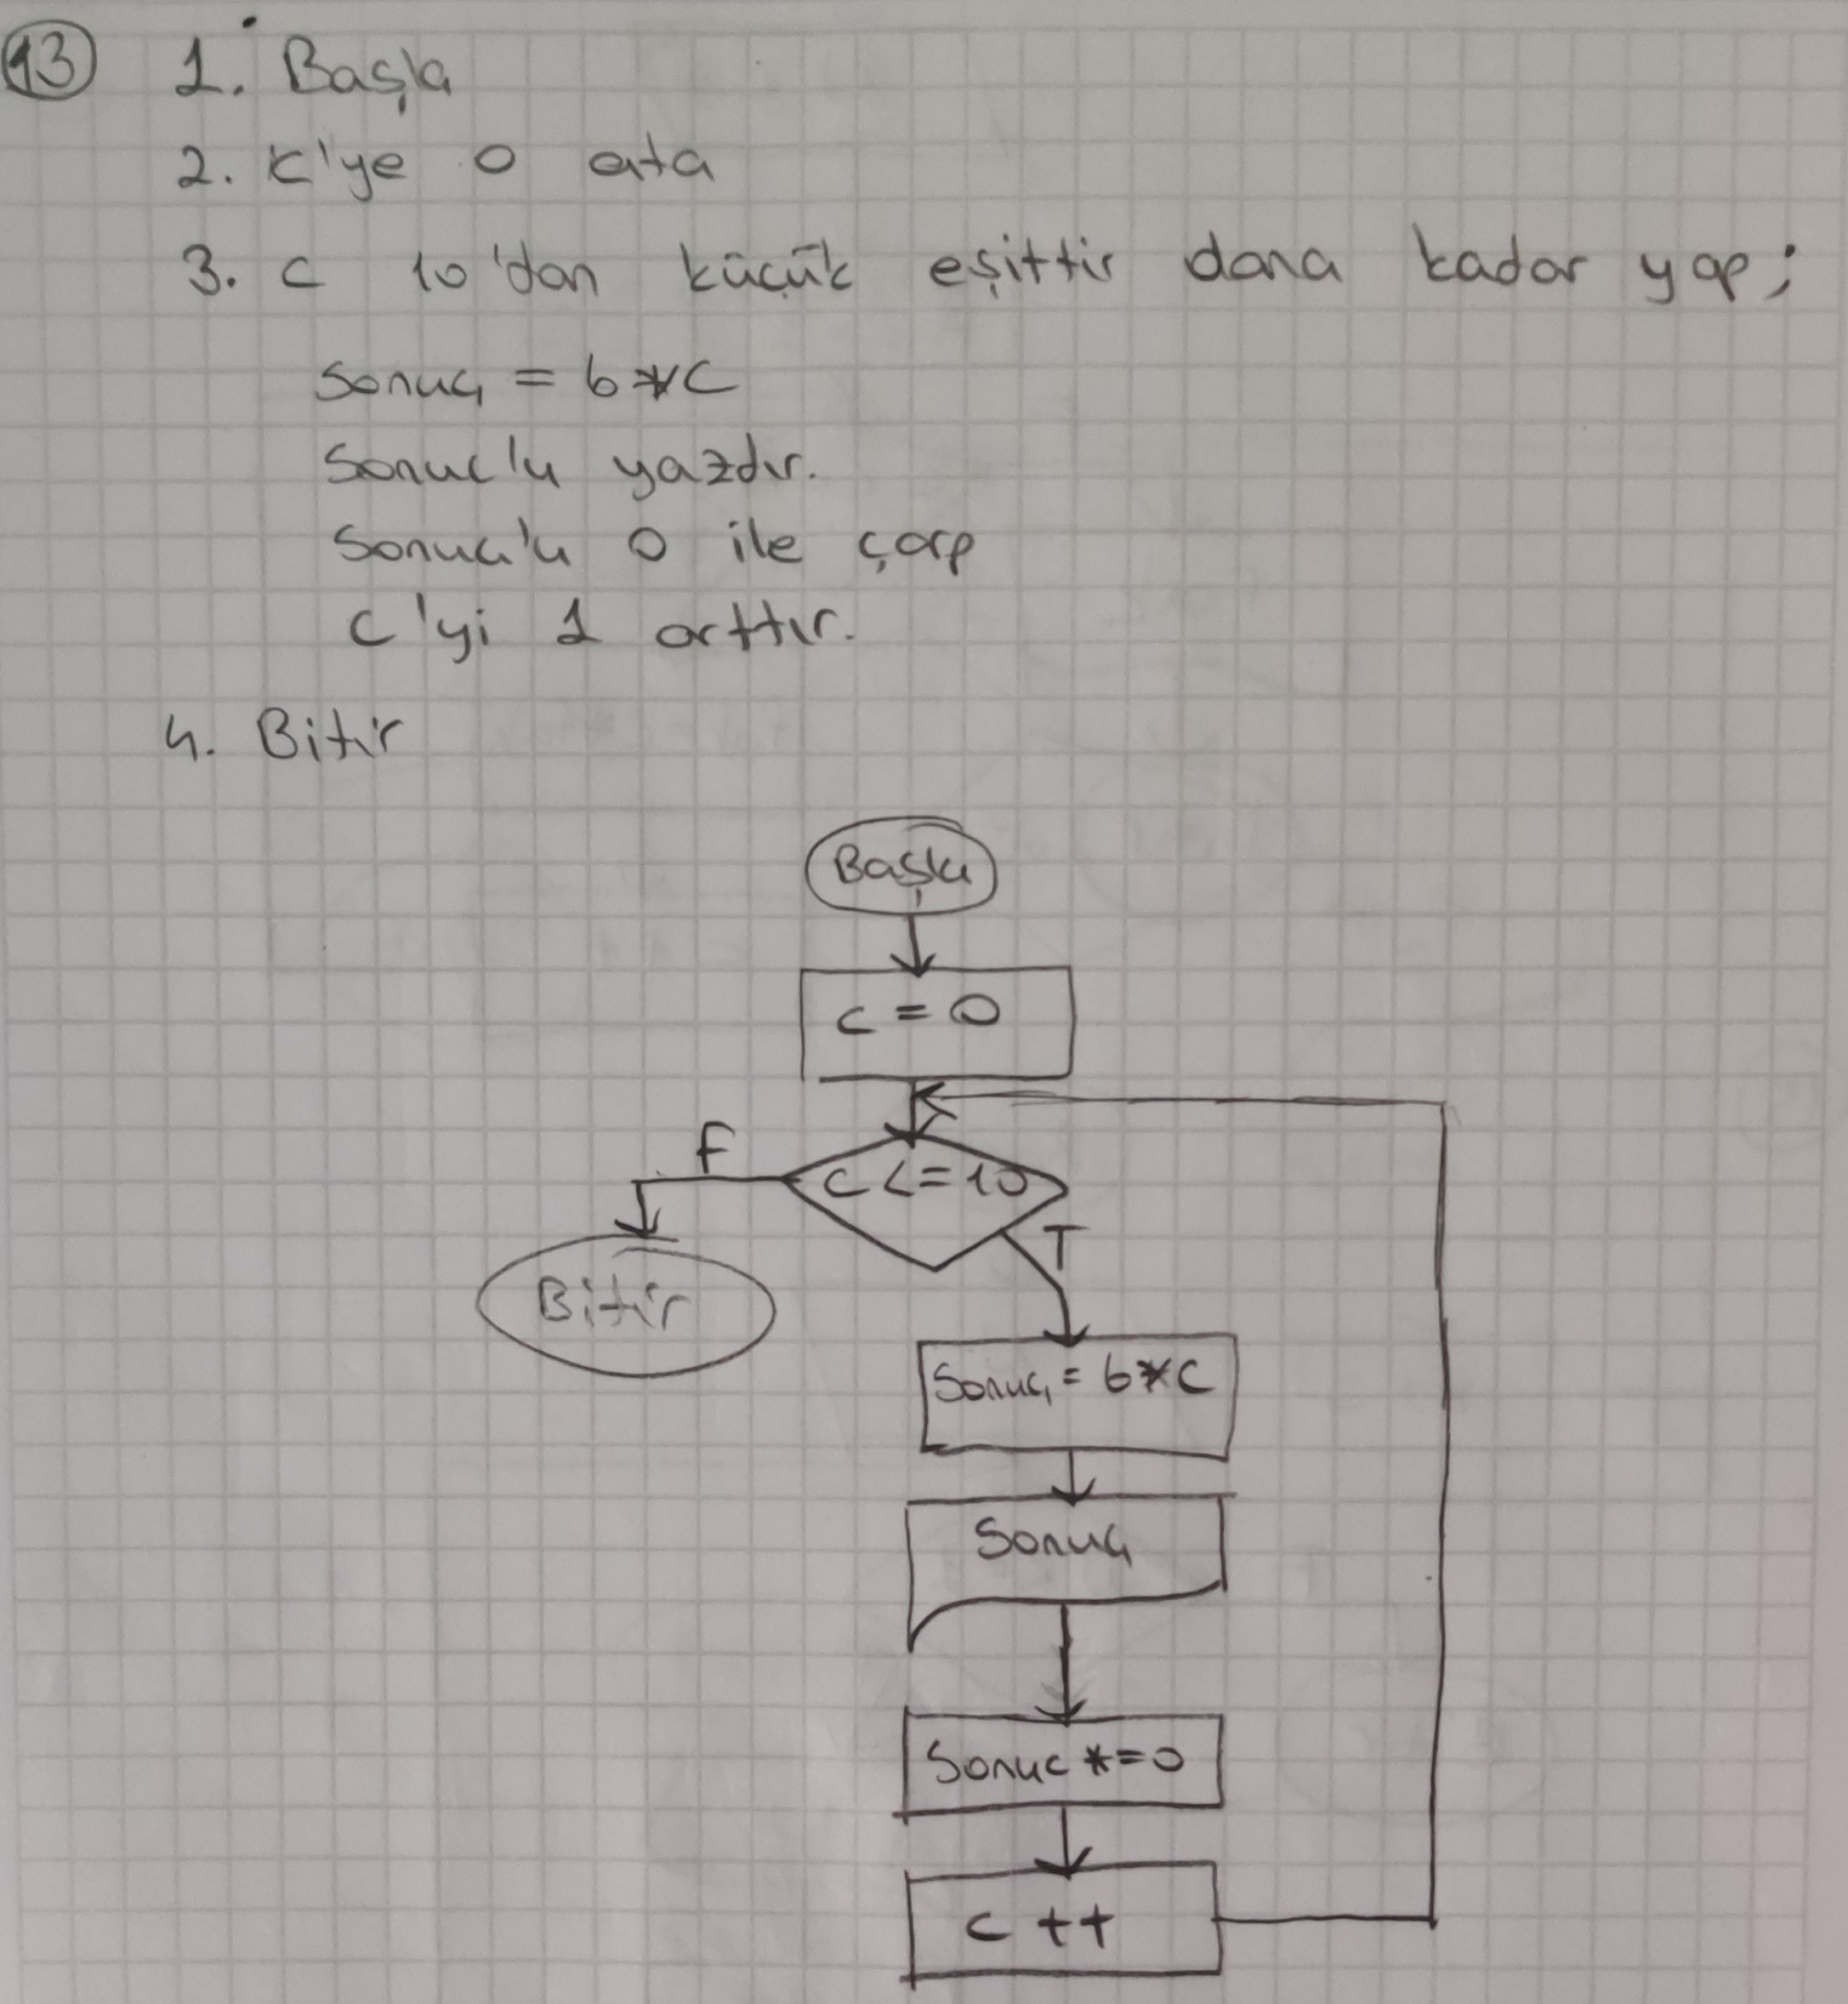 13 1. Başla
2. C'ye 0 ata
3. C 10'dan küçük eşittir dana kadar yap;
Sonuç = 6*C
Sonuc'u yazdır.
Sonuc'u 0 ile çarp
C'yi 1 arttır.
4. Bitir
Başla
C = 0
C <= 10
F
T
Bitir
Sonuç = 6*C
Sonuç
Sonuc *= 0
C ++